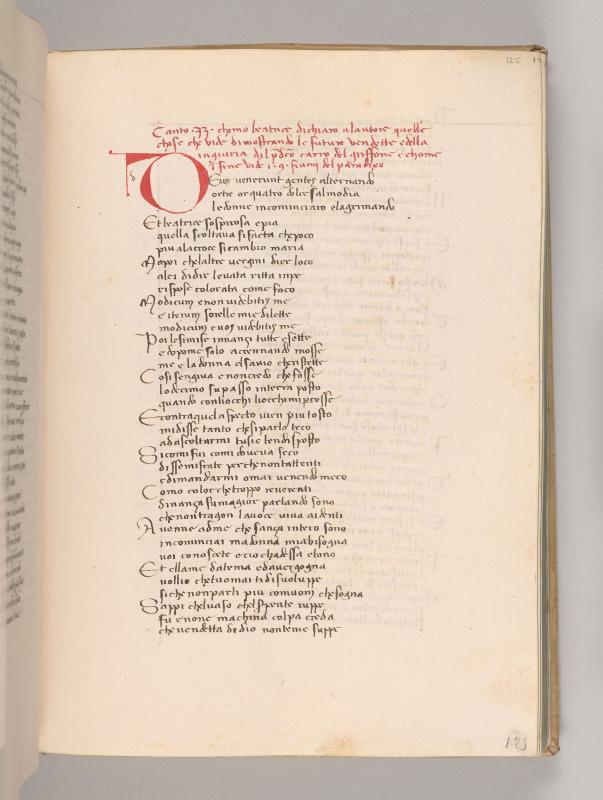 125
Canto .33. chomo beatrice dichiaro alautore quelle
chose che vide dimostrando le future vendette edella
ingiuria del pdcō carro del griffone e chome
ī fine vide i .9. fiumi del paradixo
d
Eus venerunt gentes alternando
or tre or quatro dolce salmodia
le donne incominciaro elagrimando
Et beatrice sospirosa epia
quella scoltava si facta che poco
piu alacroce si cambio maria
Mapoi chelaltre vergini dier loco
alei didir levata ritta inpe
rispose colorata come foco
Modicum enon videbitis me
e iterum sorelle mie dilette
modicum e vos videbitis me
Poi lesimise innanzi tutte esette
edopome solo accennando mosse
me e la donna elsavio cheristette
Cosi sengiva enoncredo che fosse
lo decimo supasso interra posto
quando conliocchi liocchimi percosse
Econtraquelaspecto vien piu tosto
midisse tanto chesiparlo teco
adascoltarmi tusie bendisposto
Sicomi fui comi doveva seco
dissemi frate perchenontattenti
edimandarmi omai venendo meco
Como color chetroppo reverenti
dinanza suimagior parlando sono
chenontragon lavoce viva aidenti
Avenne adme che sanza intero sono
incominciai madonna miabisogna
voi conoscete ecio chadessa ebono
Et ellame datema edavergogna
vollio chetuomai ti disvoluppe
siche nonparli piu comuom chesogna
Sappi chelvaso chelserpente ruppe
fu enone ma chi na colpa creda
chevendetta di dio nonteme suppe
125